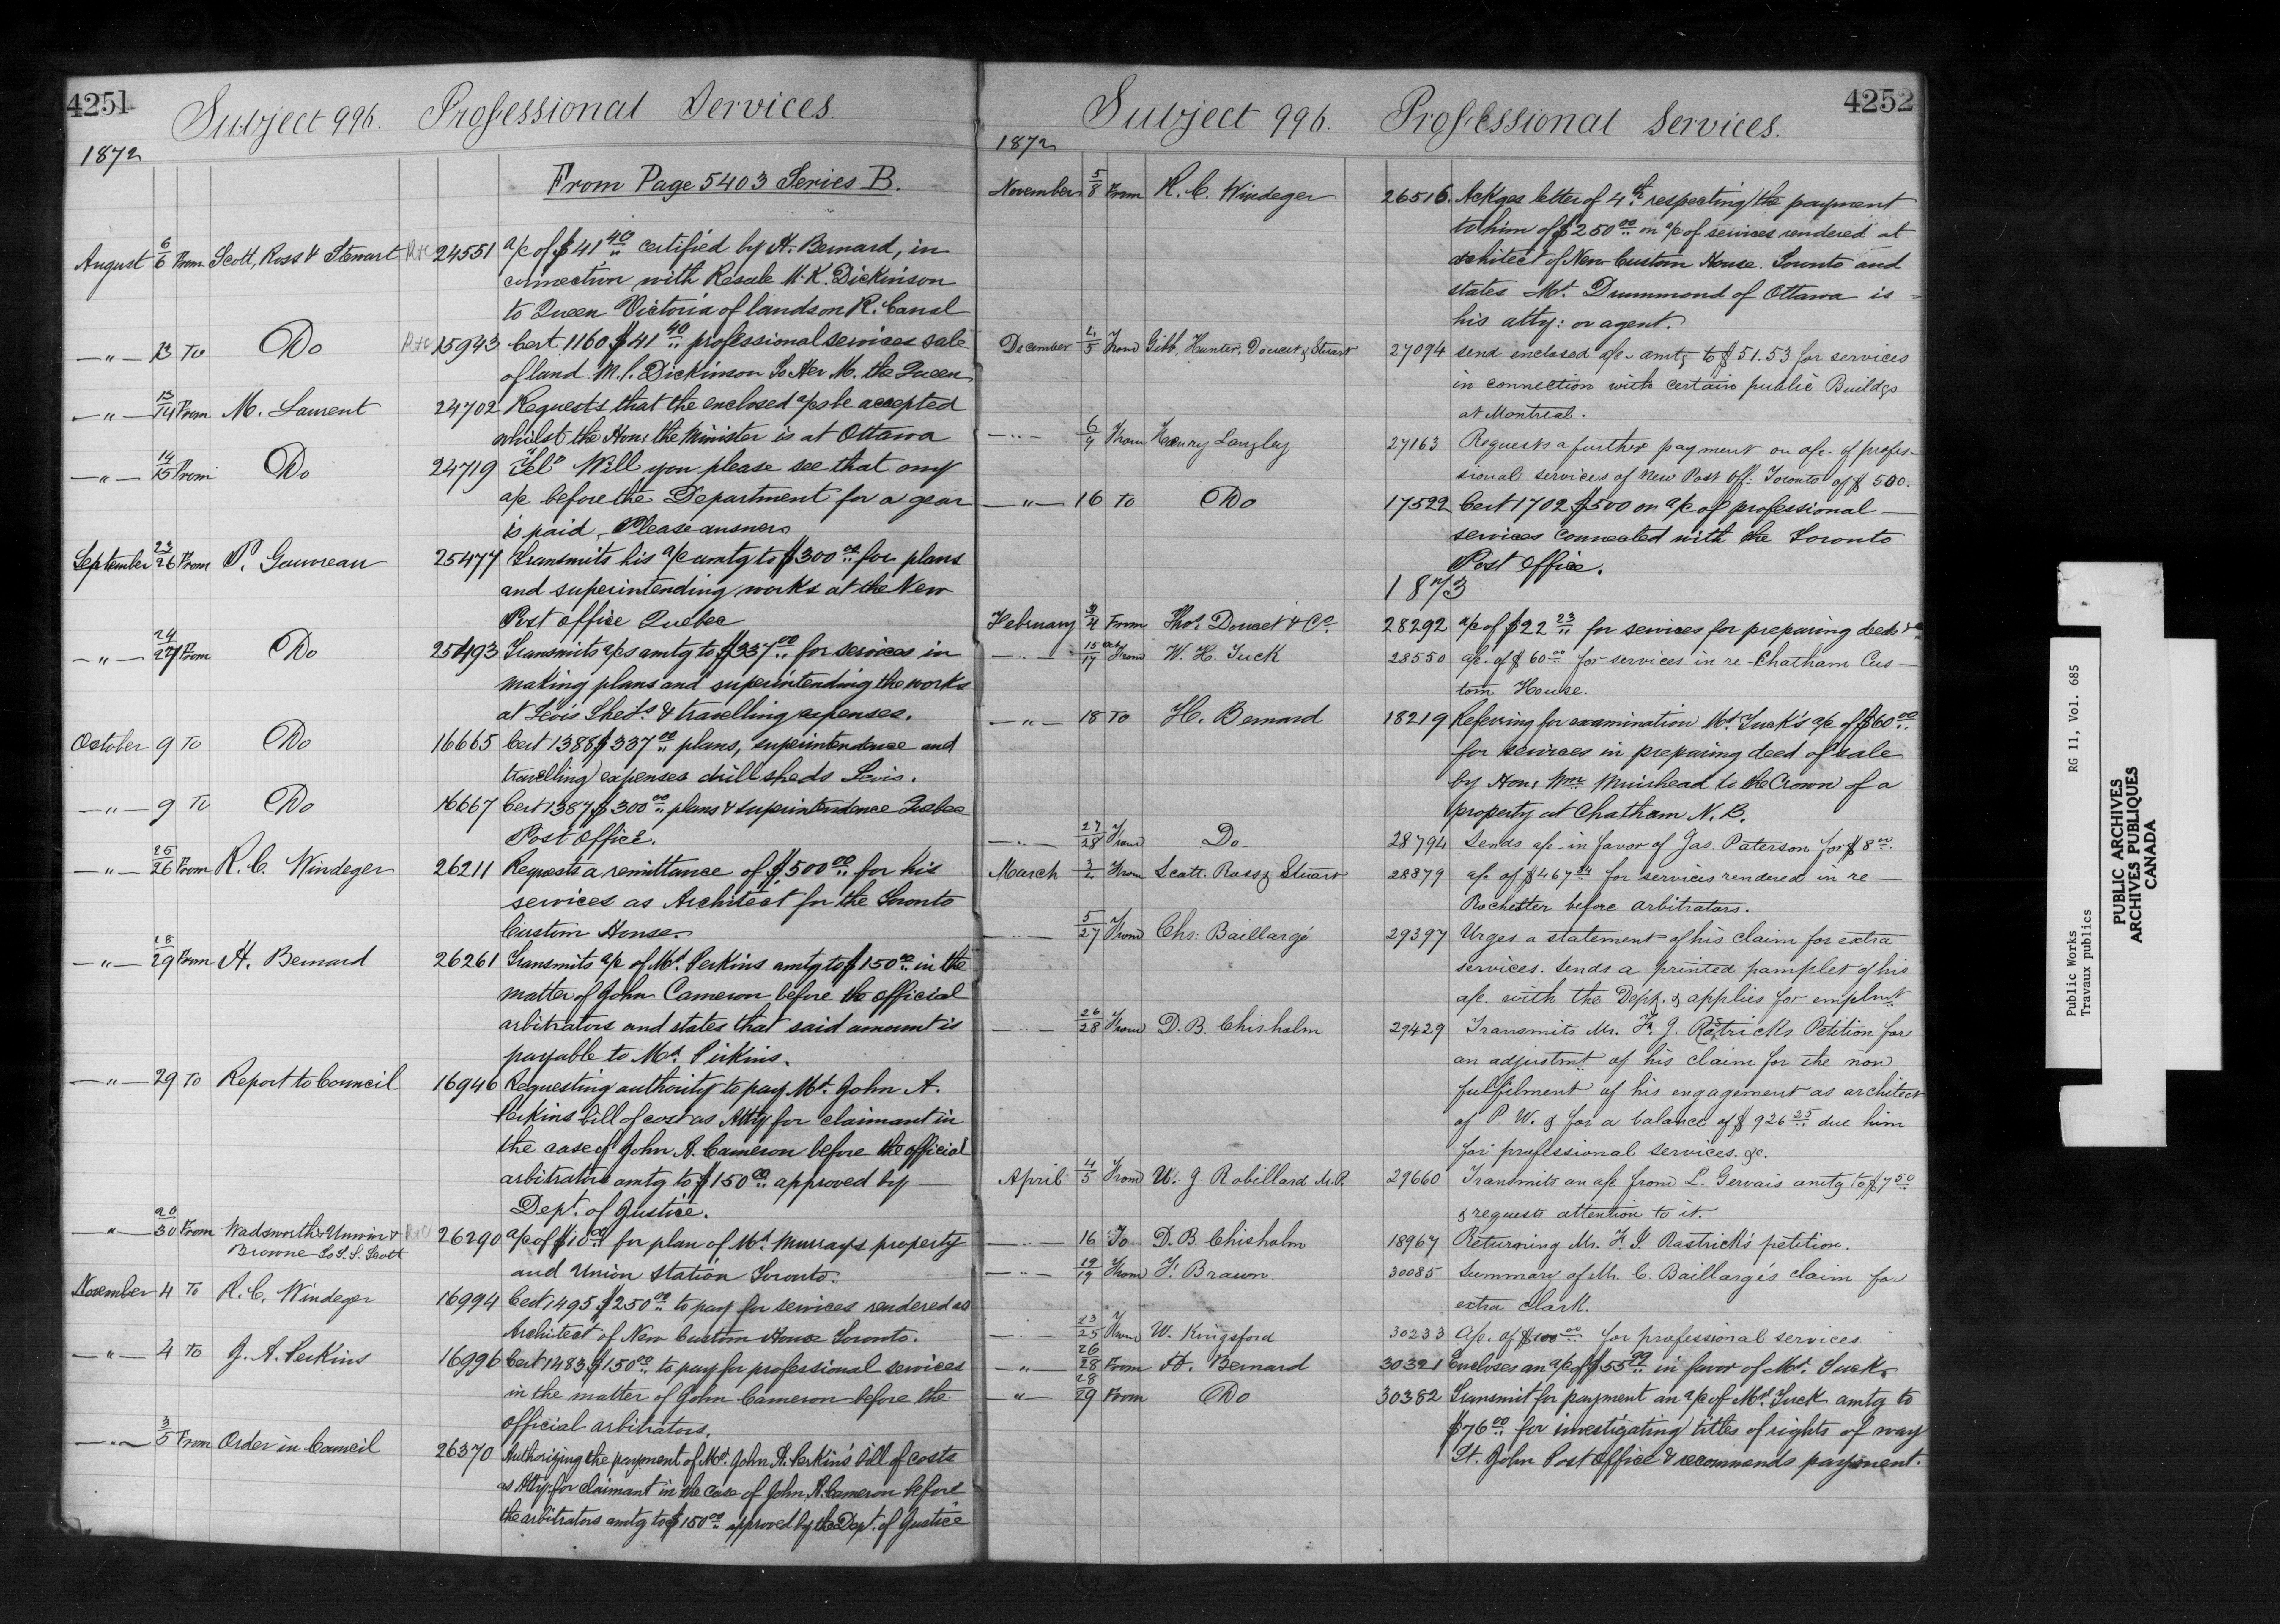 4251
Subject 996. Professional Services.
1872
From Page 5403 Series B.
August 6/6 From Scott, Ross & Stewart 24551 a/c of $41 40/" certified by H. Bernard, in
connection with Resale M. K. Dickinson
to Queen Victoria of lands on R. Canal
— " — 13 To Do 15943 Cert. 1160 $41 40/" professional services sale
of land M. C. Dickinson To Her M. the Queen
— " — 13/14 From M. Laurent 24702 Requests that the enclosed a/cs be accepted
whilst the Hon: the Minister is at Ottawa
— " — 14/15 From Do 24719 Tel" Will you please see that my
a/c before the Department for a year
is paid, Please answer
September 23/26 From P. Gauvreau 25477 Transmits his a/c amtg to $300 00/" for plans
and superintending works at the New
Post Office Quebec
— " — 24/27 From Do 25493 Transmits a/cs amtg to $337 00/" for services in
making plans and superintending the works
at Levis Sheds & travelling expenses.
October 9 To Do 16665 Cert 1388 $337 00/" plans, superintendence and
travelling expenses drill sheds Levis.
— " — 9 To Do 16667 Cert 1387 $300 00/" plans & superintendence Quebec
Post Office.
— " — 25/26 From R. C. Windeger 26211 Requests a remittance of $500 00/" for his
services as Architect for the Toronto
Custom House.
— " — 28/29 From H. Bernard 26261 Transmits a/c of Mr. Perkins amtg to $150 00/" in the
matter of John Cameron before the official
arbitrators and states that said amount is
payable to Mr. Perkins.
— " — 29 To Report to Council 16946 Requesting authority to pay Mr. John A.
Perkins bill of cost as Atty for claimant in
the case of John A. Cameron before the official
arbitrators amtg to $150 00/" approved by —
Dept. of Justice.
— " — 30 From Wadsworth Unwin & 26290 a/c of $10 00/" for plan of Mr. Murray's property
Browne To T. S. Scott
and Union Station Toronto.
November 4 To R. C. Windeger 16994 Cert 1495 $250 00/" to pay for services rendered as
Architect of New Custom House Toronto.
— " — 4 To J. A. Perkins 16996 Cert 1483 $150 00/" to pay for professional services
in the matter of John Cameron before the
official arbitrators.
— " — 3/5 From Order in Council 26370 Authorizing the payment of Mr. John A. Perkin's bill of costs
as Atty: for claimant in the case of John A. Cameron before
the arbitrators amtg to $150 00/" approved by the Dept. of Justice
4252
Subject 996. Professional Services.
1872
November 5/8 From R. C. Windeger 26516. Ackges letter of 4th respecting the payment
to him of $250 00/" on a/c of services rendered at
architect of New Custom House. Toronto and
states Mr. Drummond of Ottawa is =
his atty: or agent.
December 4/5 From Gibb, Hunter, Doucet & Stuart 27094 send enclosed a/c amtg to $51.53 for services
in connection with certain public Buildgs
at Montreal.
— " — 6/7 From Henry Langley 27163 Requests a further payment on a/c. of profes-
sional services of New Post Off. Toronto of $500.
— " — 16 To Do 17522 Cert 1702 $500 on a/c of professional —
services connected with the Toronto
Post Office.
1873
February 3/4 From Thos. Doucet & Co. 28292 a/c of $22 23/" for services for preparing deeds &
— " — 15/17 From W. H. Tuck 28550 a/c. of $60 00 for services in re Chatham Cus-
tom House.
— " — 18 To H. Bernard 18219 Referring for examination Mr. Tuck's a/c of $60 00/"
for services in preparing deed of sale
by Hon: Wm. Muirhead to the Crown of a
property at Chatham N. B.
— " — 27/28 From Do 28794 Sends a/c in favor of Jas. Paterson for $8 00.
March 3/4 From Scott. Ross & Stuart 28879 a/c. of $467 84 for services rendered in re —
Rochester before arbitrators.
— " — 5/27 From Chs: Baillargé 29397 Urges a statement of his claim for extra
services. Sends a printed pamplet of his
a/c. with the Dept. & applies for emplmt
— " — 26/28 From D. B. Chisholm 29429 Transmits Mr. F. J. Rastricks Petition for
an adjustmt of his claim for the non
fulfilment of his engagement as architect
of P. W. & for a balance of $926 25/" due him
for professional services. &c.
April 4/5 From U. J. Robillard M.P. 29660 Transmits an a/c from L. Gervais amtg to $7 50/"
& requests attention to it.
— " — 16 To D. B. Chisholm 18967 Returning Mr. F. J. Rastrick's petition.
— " — 19/19 From F. Braun. 30085 Summary of Mr. C. Baillargé's claim for
extra clark.
— " — 23/25 From W. Kingsford 30233 A/c. of $100 00/" for professional services.
— " — 26/28 From H. Bernard 30321 Encloses an a/c of $55 99/" in favor of Mr. Tuck.
— " — 28/29 From Do 30382 Transmit for payment an a/c of Mr. Tuck amtg to
$76 00/" for investigating titles of rights of way
St. John Post Office & recommends payment.
Public Works RG 11, Vol. 685
Travaux publics
PUBLIC ARCHIVES
ARCHIVES PUBLIQUES
CANADA